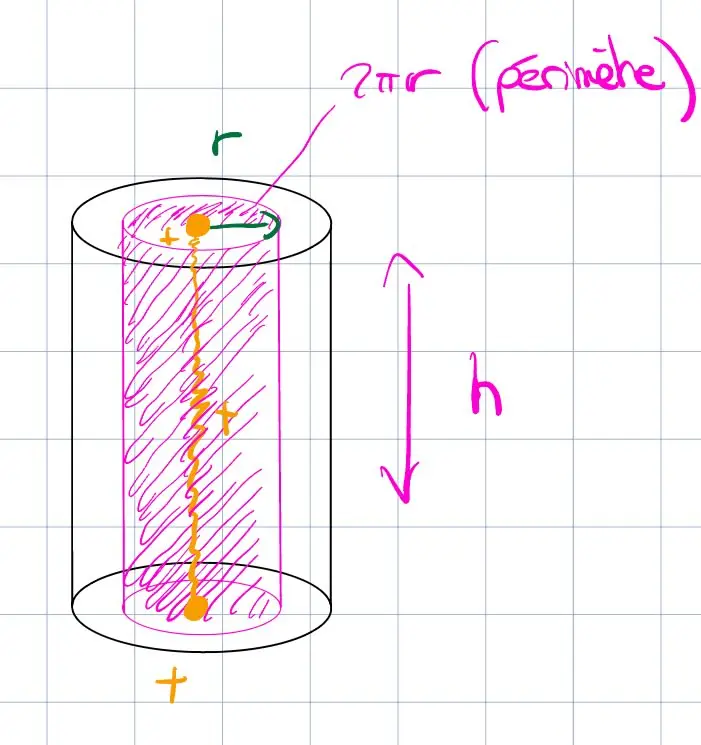 2πr (périmètre)
r
+
h
+
+